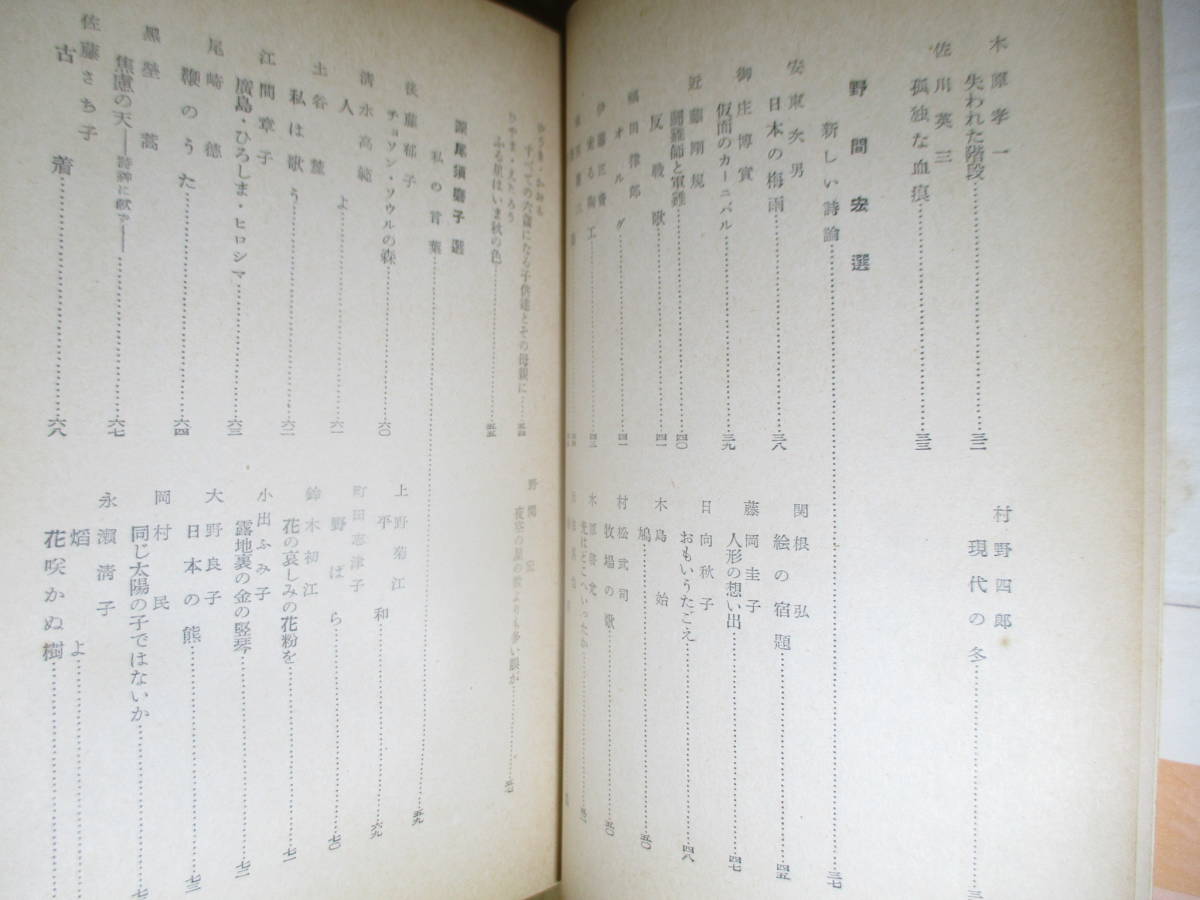 木原孝一
失われた階段……三二
佐川英三
孤独な血痕……三三
村野四郎
現代の冬……三
野間宏選
新しい詩論……三七
安東次男
日本の梅雨……三八
御庄博實
仮面のカーニバル……三九
近藤剛規
闘雞師と軍雞……四〇
反戦歌……四一
福田律郎
オルグ……四一
関根弘
絵の宿題……四五
藤岡圭子
人形の想い出……四七
日向秋子
おもいうたごえ……四八
木島始
鳩……五〇
村松武司
牧場の歌……五〇
すべての六歳になる子供達とその母親に……五四
ふる里はいま秋の色……五五
野間宏
夜空の星の数よりも多い眼が
深尾須磨子選
私の言葉……五九
後藤郁子
チョソン・ソウルの森……六〇
清水高範
人よ……六一
土谷麓
私は歌う……六二
江間章子
廣島・ひろしま・ヒロシマ……六三
尾崎徳
鞭のうた……六四
焦慮の天――詩碑に献ず――……六七
佐藤さち子
古着……六八
上野菊江
平和……六九
町田志津子
野ばら……七〇
鈴木初江
花の哀しみの花粉を……七一
小出ふみ子
露地裏の金の竪琴……七二
大野良子
日本の熊……七三
岡村民
同じ太陽の子ではないか……七
永瀬清子
焰よ……
花咲かぬ樹……